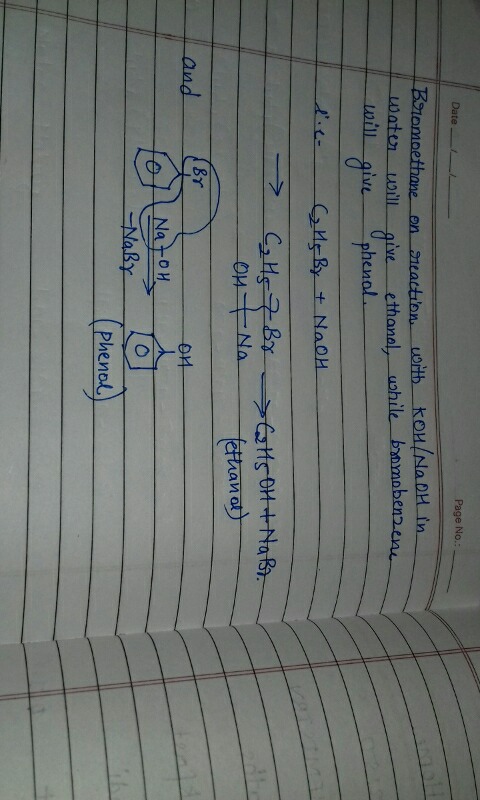 Date __/__/__ Page No.:
Bromoethane on reaction with KOH/NaOH in
water will give ethanol, while bromobenzene
will give phenol.
i.e- C₂H₅Br + NaOH
→ C₂H₅ Br → C₂H₅OH + NaBr.
OH Na (ethanol)
and
Br OH
Na OH
-NaBr
(Phenol)